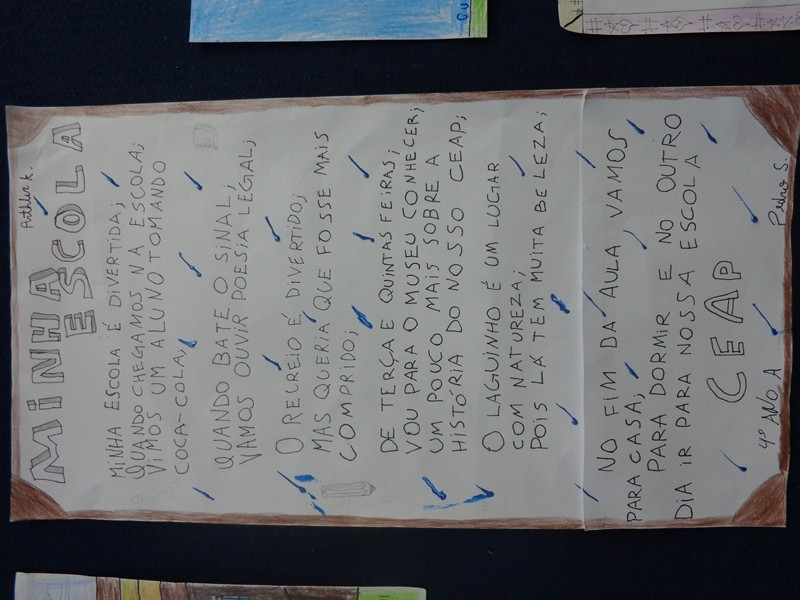 Arthur K.
MINHA
ESCOLA
MINHA ESCOLA É DIVERTIDA;
QUANDO CHEGAMOS NA ESCOLA;
VIMOS UM ALUNO TOMANDO
COCA-COLA;
QUANDO BATE O SINAL;
VAMOS OUVIR POESIA LEGAL;
O RECREIO É DIVERTIDO;
MAS QUERIA QUE FOSSE MAIS
COMPRIDO;
DE TERÇA E QUINTAS FEIRAS;
VOU PARA O MUSEU CONHECER;
UM POUCO MAIS SOBRE A
HISTÓRIA DO NOSSO CEAP;
O LAGUINHO É UM LUGAR
COM NATUREZA;
POIS LÁ TEM MUITA BELEZA;
NO FIM DA AULA VAMOS
PARA CASA;
PARA DORMIR E NO OUTRO
DIA IR PARA NOSSA ESCOLA
CEAP
4º ANO A
Pedro S.